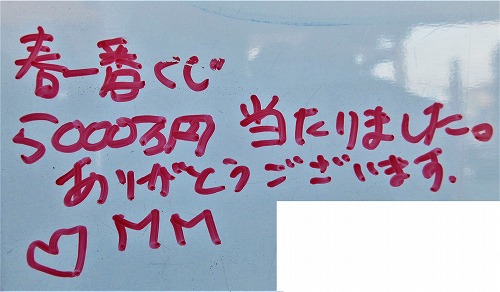 春一番くじ
5000万円 当たりました。
ありがとうございます.
♡ MM